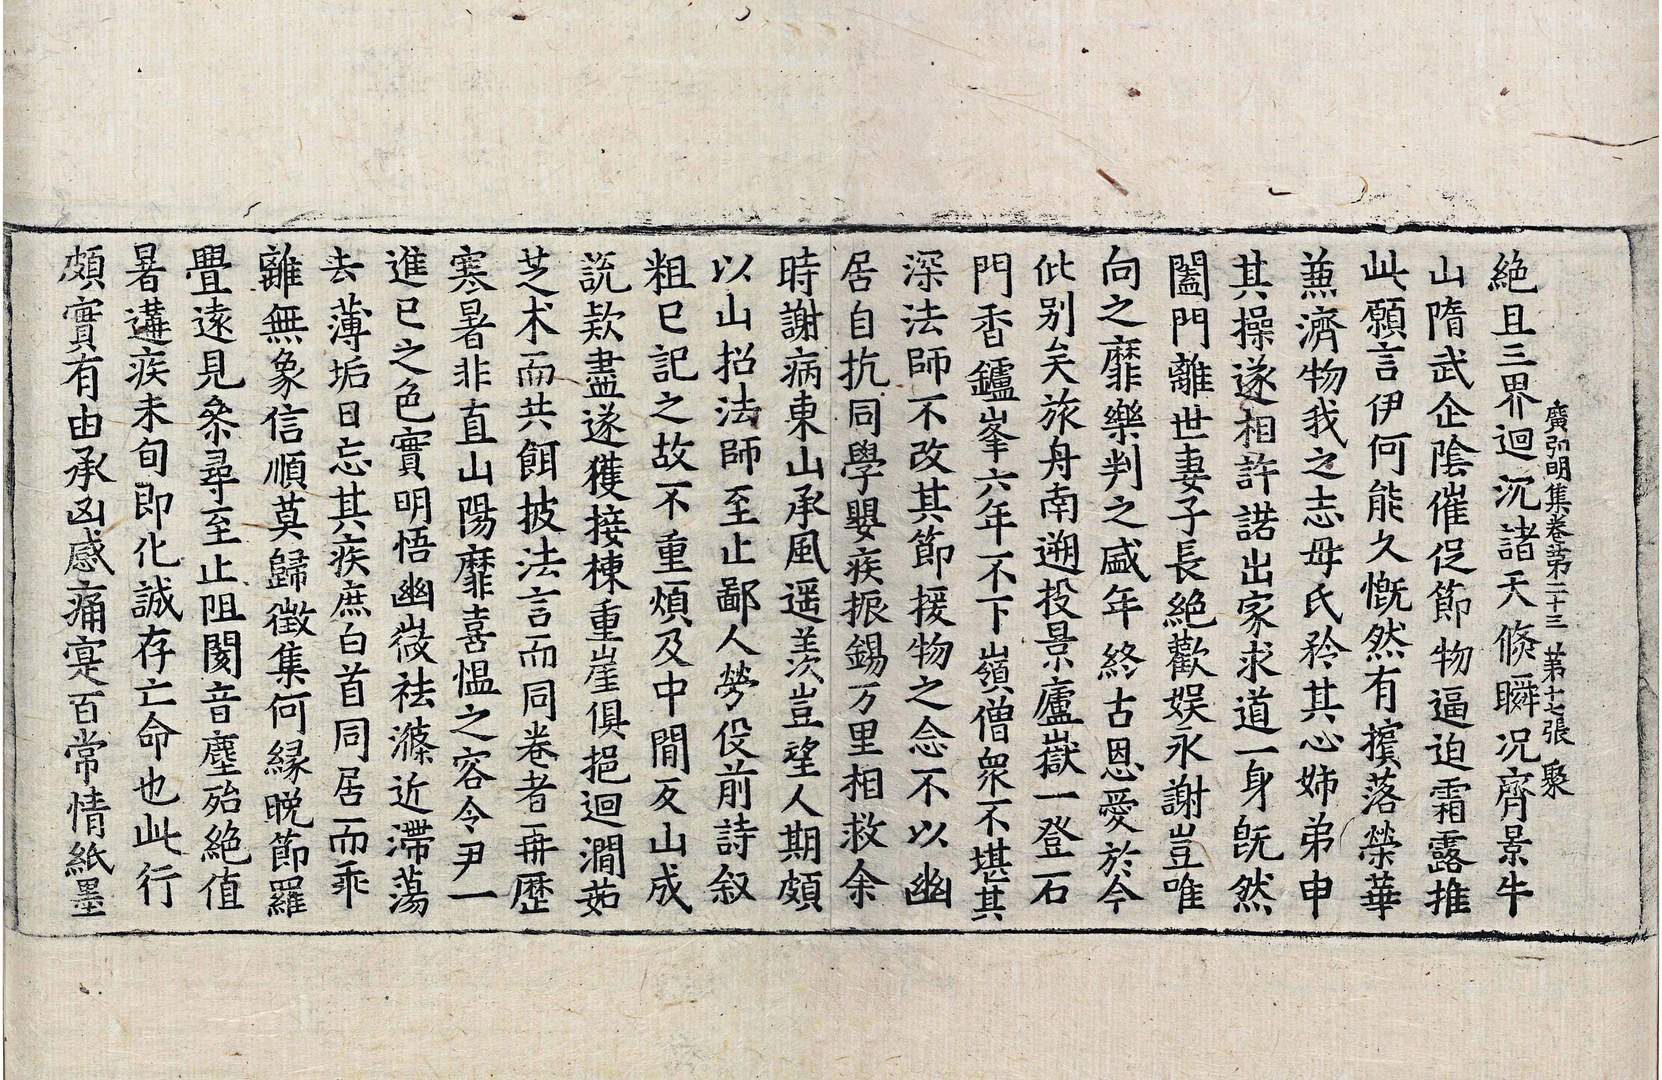 絶且三界迴沉諸天倏瞬况齊景牛
廣弘明集卷第二十三 第七張 聚
山隋武企陰催促節物逼迫霜露推
此願言伊何能久慨然有擯落榮華
兼濟物我之志母氏矜其心姉弟申
其操遂相許諾出家求道一身旣然
闔門離世妻子長絶歡娱永謝豈唯
向之靡樂判之盛年終古恩愛於今
仳别矣旅舟南遡投景廬嶽一登石
門香鑪峯六年不下嶺僧衆不堪其
深法師不改其節援物之念不以幽
居自抗同學嬰疾振錫万里相救余
時謝病東山承風遥羨豈望人期頗
以山招法師至止鄙人勞役前詩叙
粗已記之故不重煩及中閒反山成
説欵盡遂獲接棟重崖俱挹迴澗茹
芝术而共餌披法言而同卷者再歷
寒暑非直山陽靡喜愠之容令尹一
進已之色實明悟幽㣲祛滌近滯蕩
去薄垢日忘其疾庶白首同居而乖
離無象信順莫歸徵集何縁晩節羅
舋遠見參尋至止阻閡音塵殆絶值
暑遘疾未旬即化誠存亡命也此行
頗實有由承凶感痛寔百常情紙墨